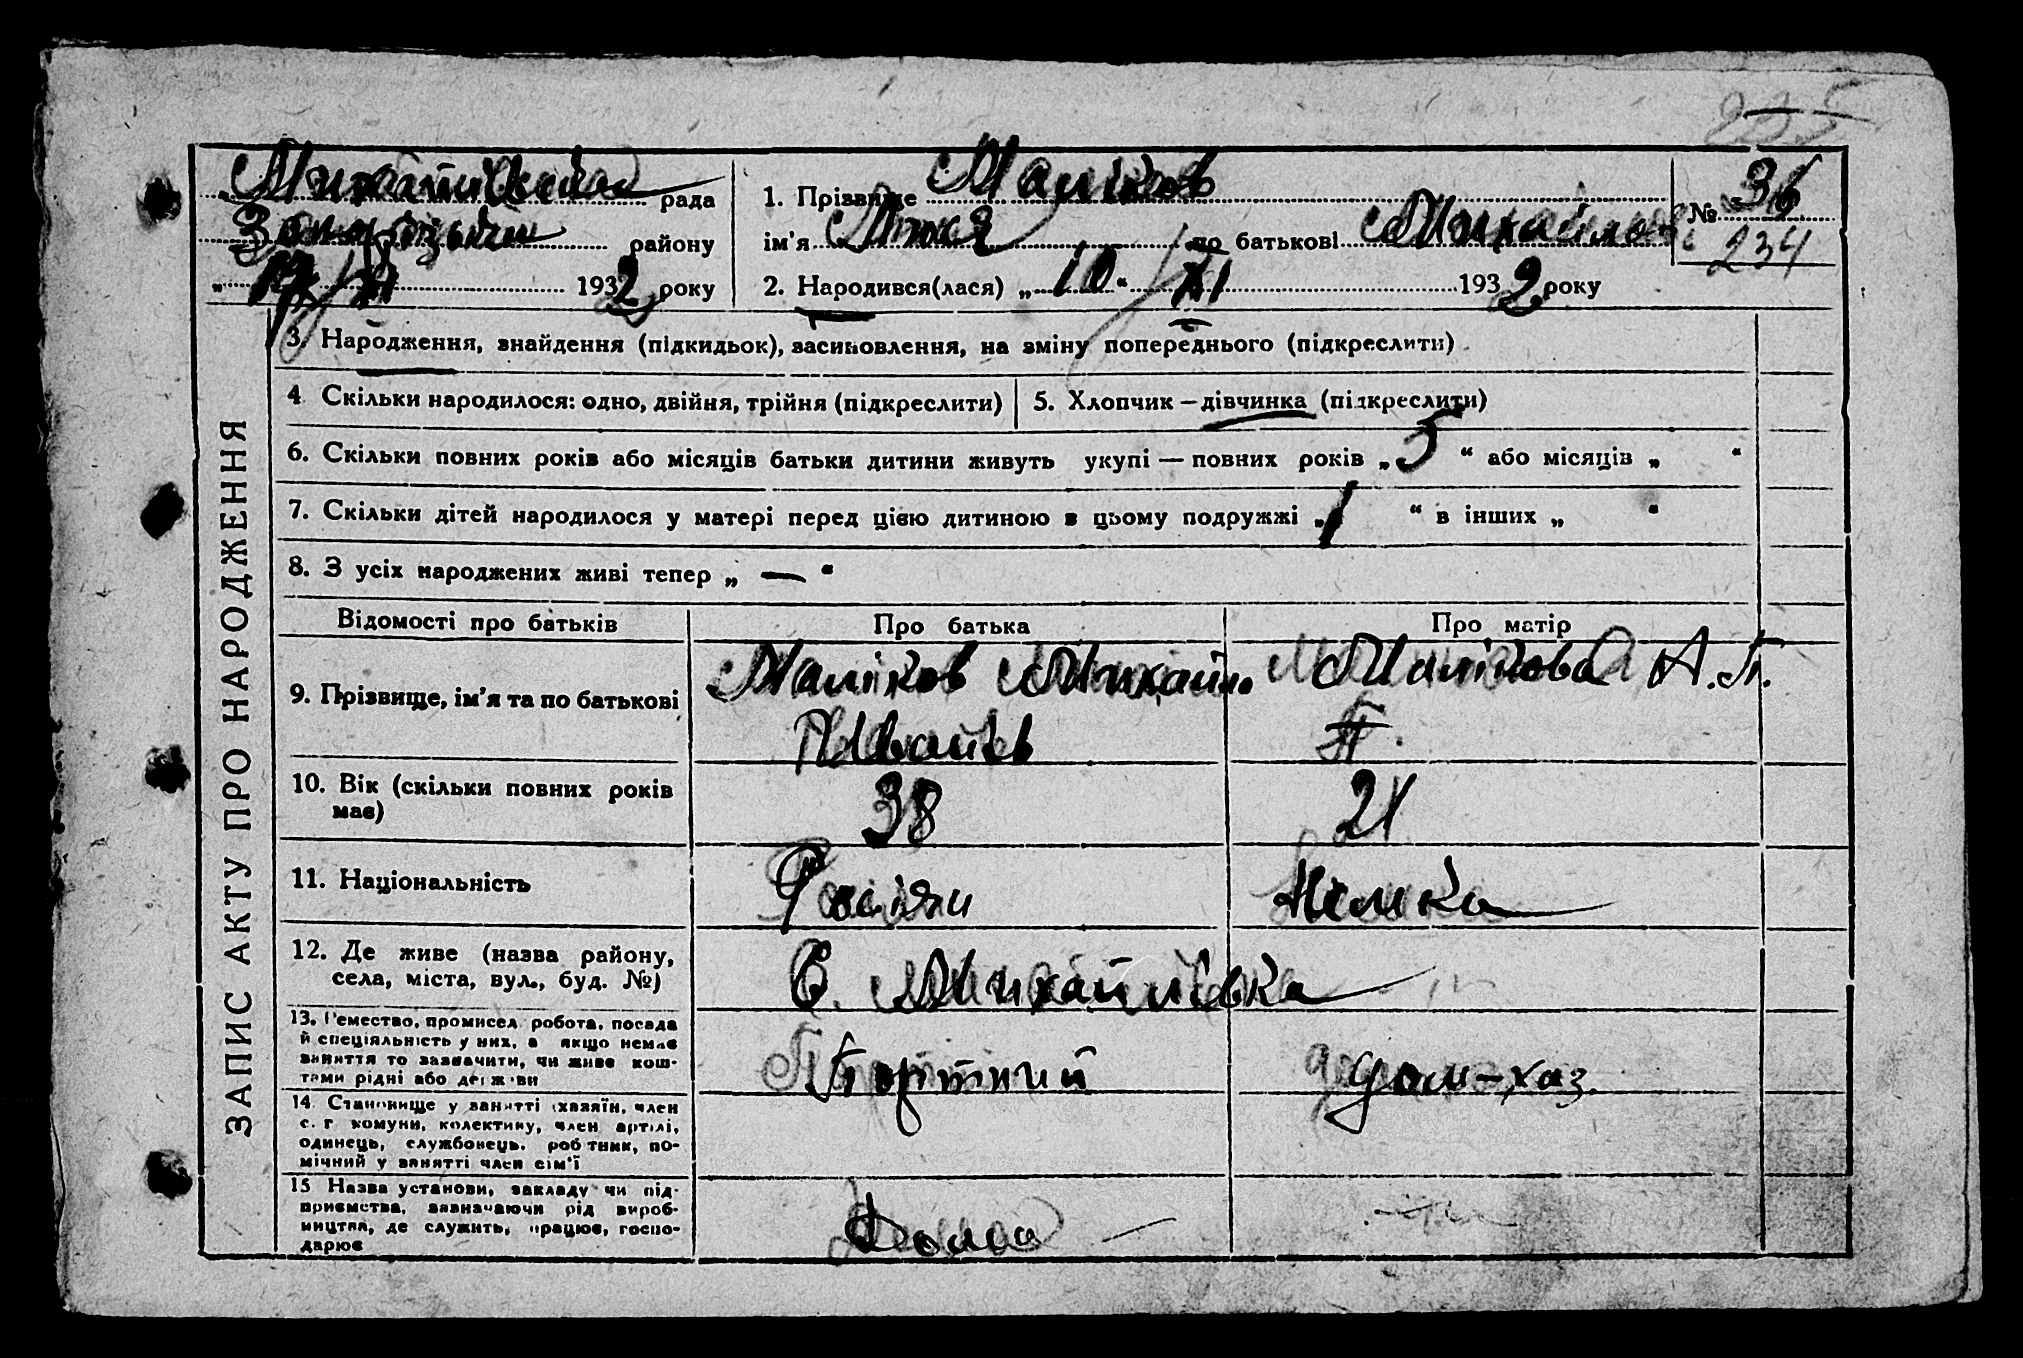 Михайлівська рада
району
193 2 року
1. Прізвище Маліков
ім'я Люся по батькові Михайло
№ 36
234
2. Народився(лася) „ 10 “ XI 193 2 року
ЗАПИС АКТУ ПРО НАРОДЖЕННЯ
3. Народження, знайдення (підкидьок), засиновлення, на зміну попереднього (підкреслити)
4 Скільки народилося: одно, двійня, трійня (підкреслити) 5. Хлопчик – дівчинка (підкреслити)
6. Скільки повних років або місяців батьки дитини живуть укупі — повних років „ 5 “ або місяців „ “
7. Скільки дітей народилося у матері перед цією дитиною в цьому подружжі „ 1 “ в інших „ “
8. З усіх народжених живі тепер „ — “
Відомості про батьків Про батька Про матір
9. Прізвище, ім'я та по батькові Маліков Михайло Малікова А. П.
Иванов П.
10. Вік (скільки повних років 38 21
має)
11. Національність Росіян Немка
12. Де живе (назва району,
села, міста, вул., буд. №) С. Михайлівка
13. Ремество, промисел робота, посада
й спеціяльність у них, а якщо немає
заняття то зазначити, чи живе кош-
тами рідні або держави Портний дом-хаз.
14. Становище у занятті (хазяїн, член
с. г комуни, колективу, член артілі,
одинець, службовець, робітник, по-
мічний у занятті член сім'ї
15 Назва установи, закладу чи під-
приємства, зазначаючи рід вироб-
ництва, де служить, працює, госпо-
дарює Дома —